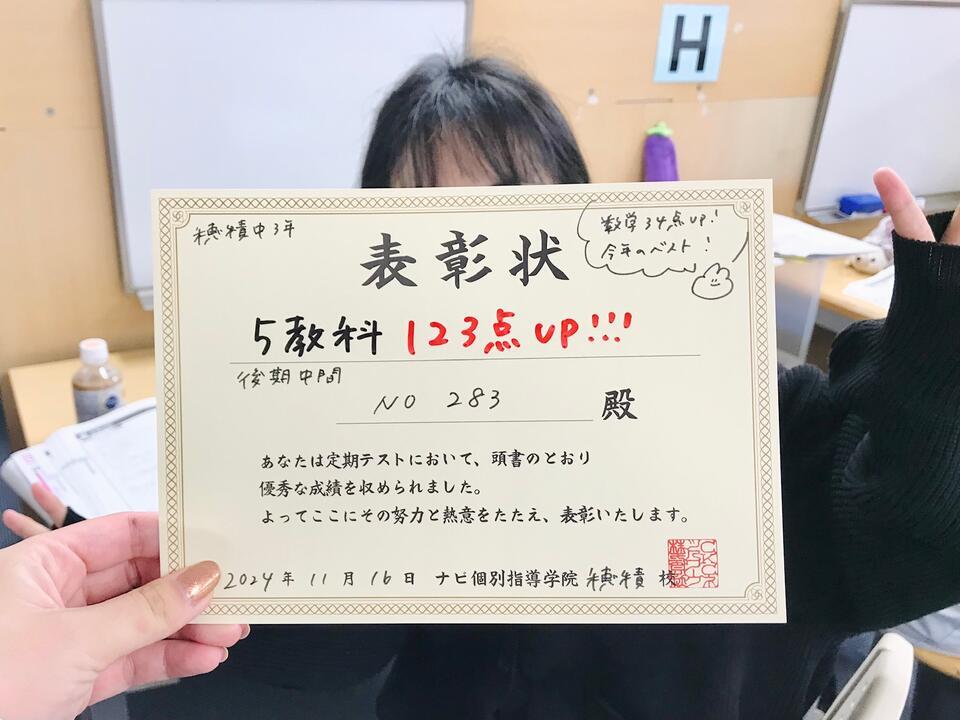 H
穂積中3年
表彰状
数学34点UP!
今年のベスト!
5教科 123点UP!!!
後期中間
NO 283 殿
あなたは定期テストにおいて、頭書のとおり
優秀な成績を収められました。
よってここにその努力と熱意をたたえ、表彰いたします。
2024年 11月 16日 ナビ個別指導学院 穂積 校